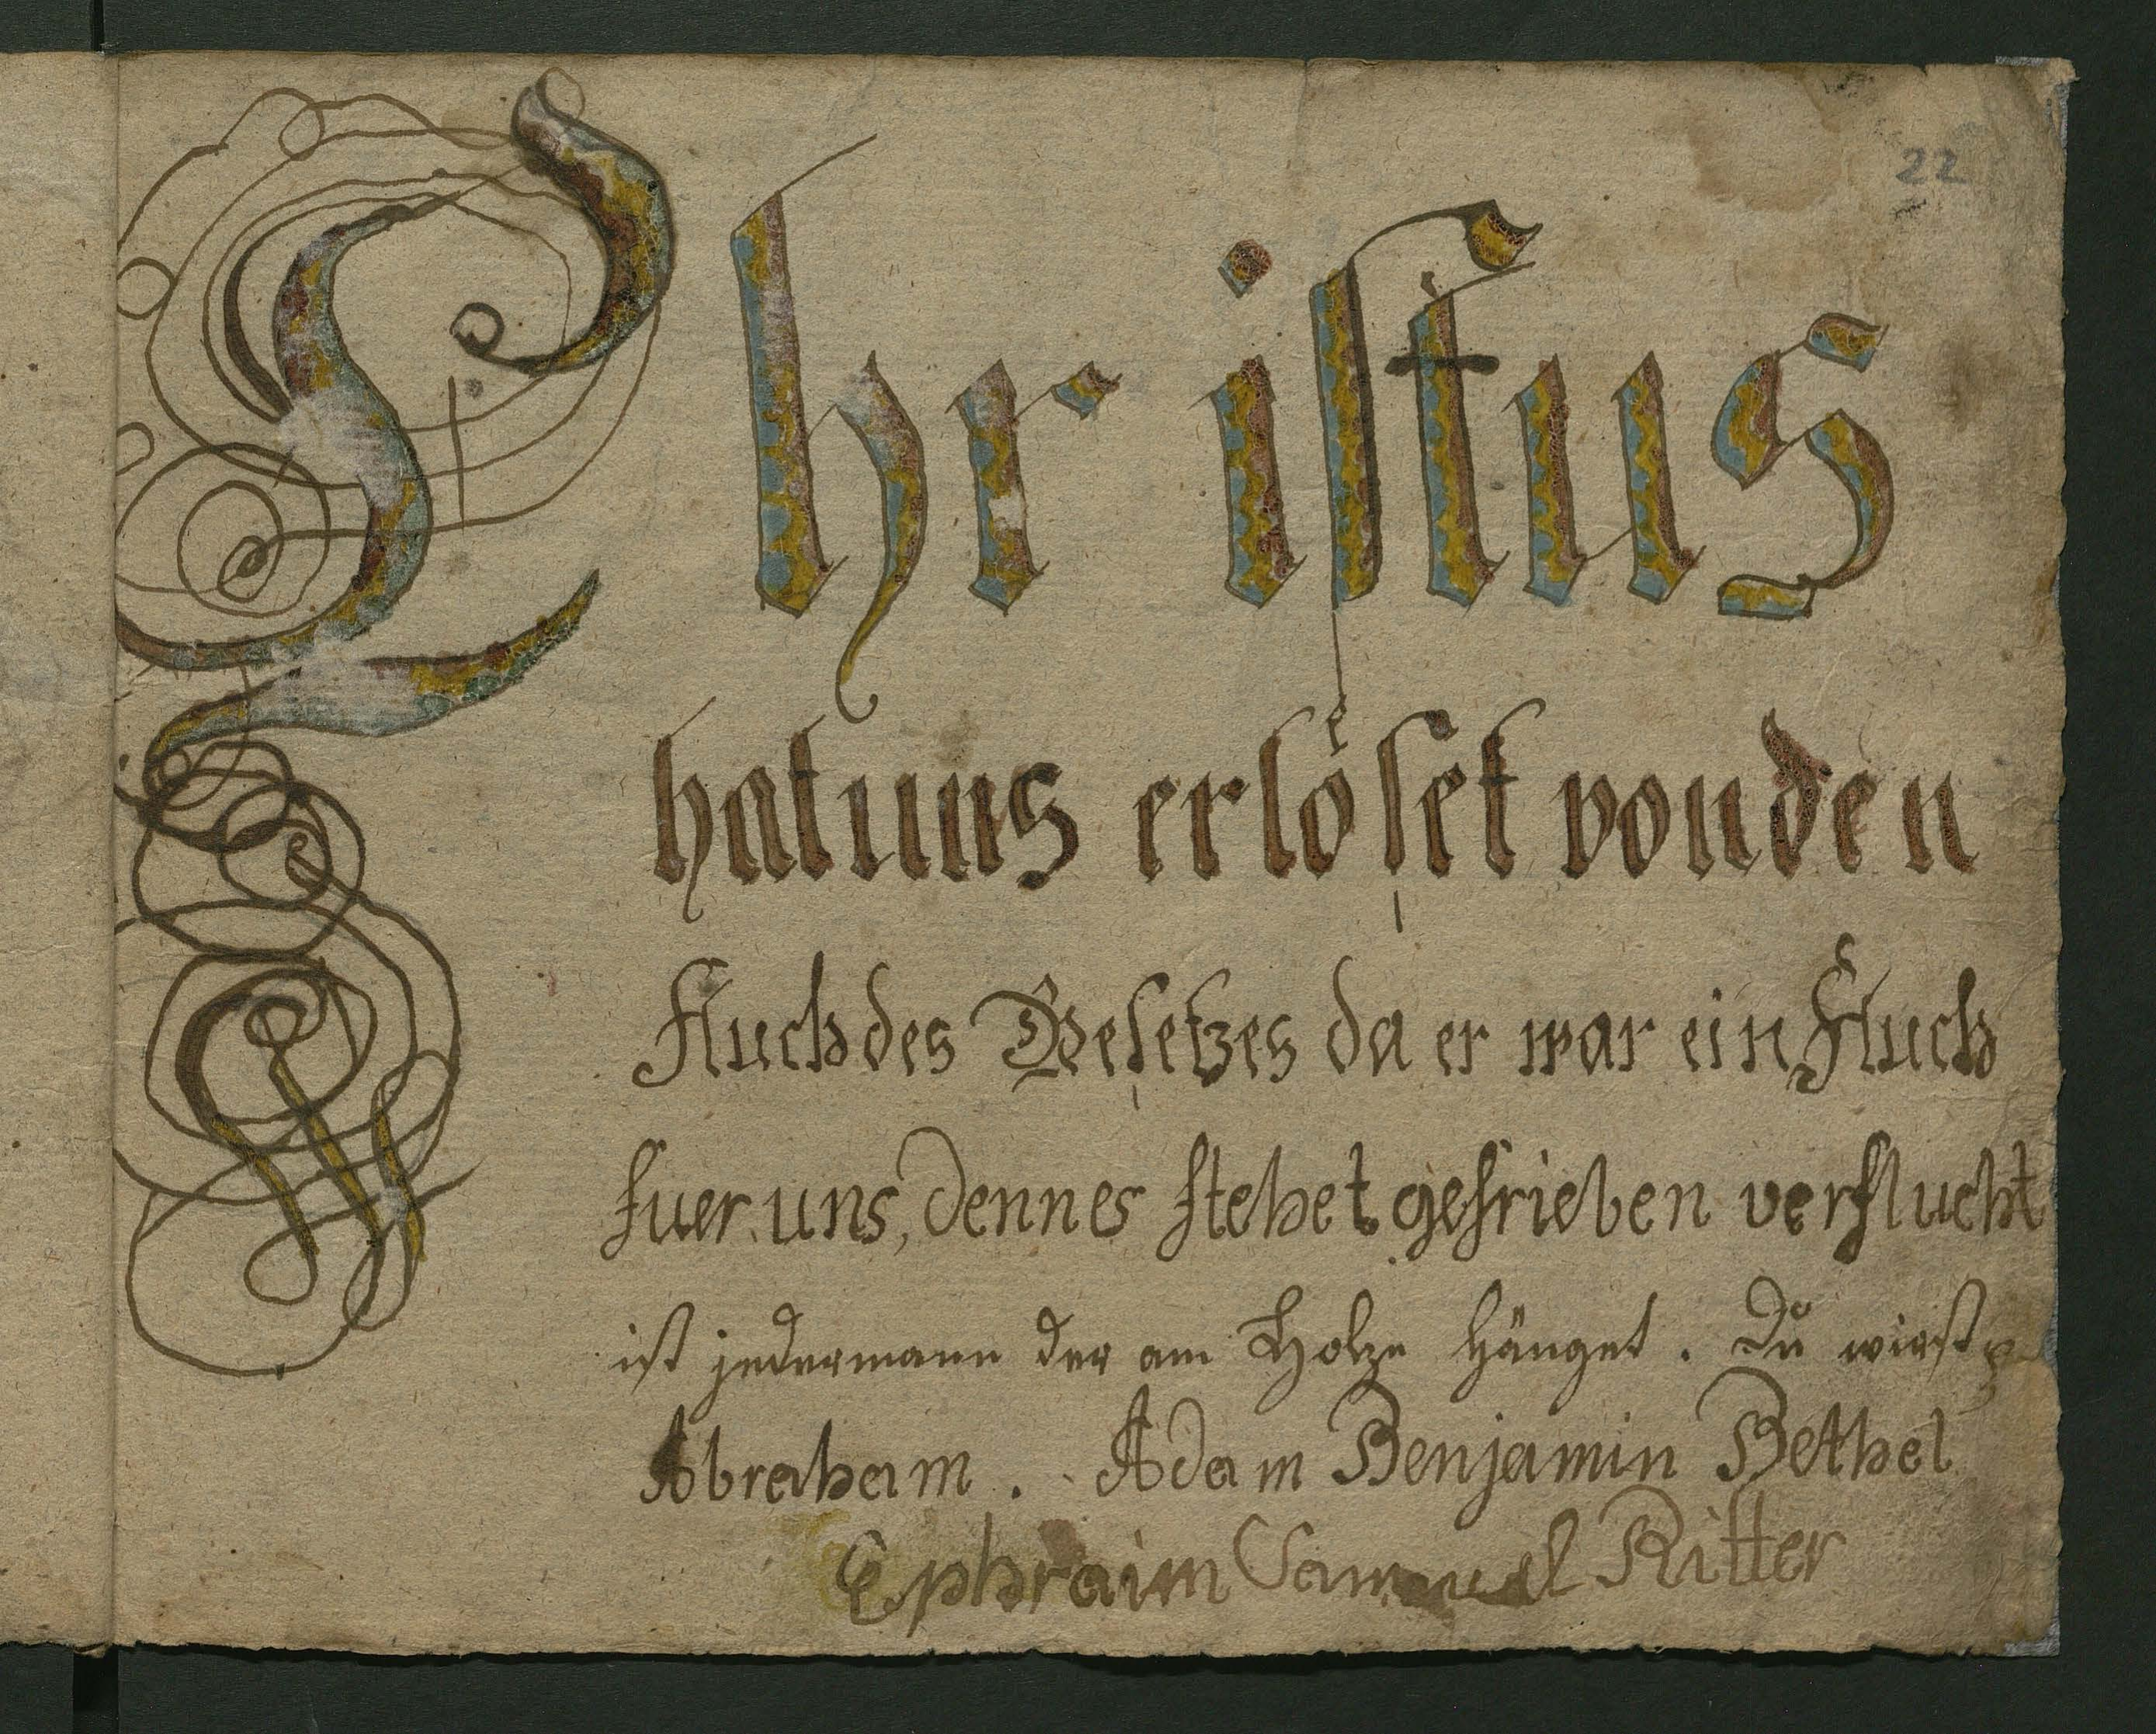 22
Christus
hat uns erlöset von den
Fluch des Gesetzes da er war ein Fluch
fuer uns, denn es stehet gesrieben verflucht
ist jedermann der am Holze hänget. Du wirst
Abraham. Adam Benjamin Bethel
Ephraim Samuel Ritter